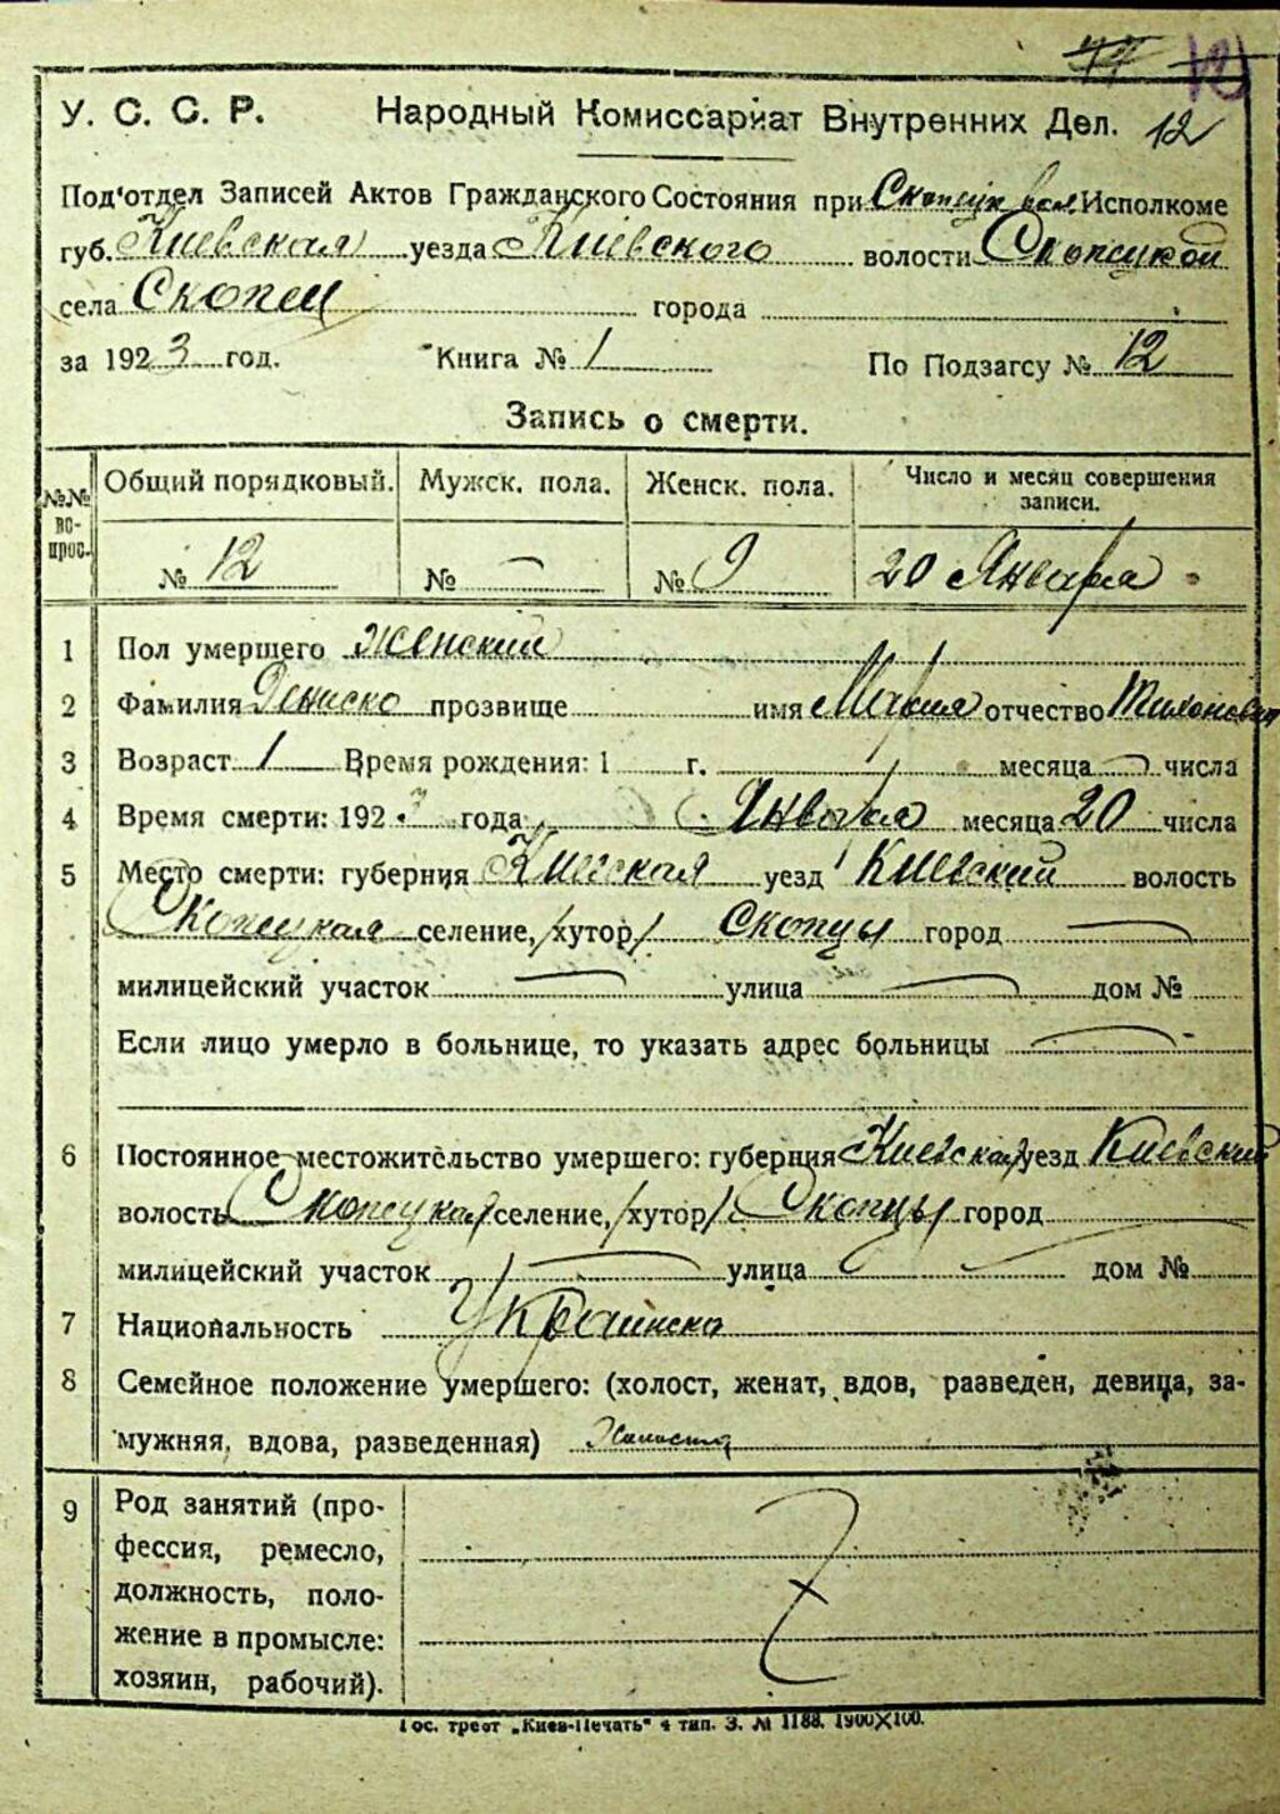 12
У. С. С. Р. Народный Комиссариат Внутренних Дел. 12
Под'отдел Записей Актов Гражданского Состояния при Скопецк вол. Исполкоме
губ. Киевская уезда Киевского волости Скопецкой
села Скопцы города
за 1923 год. Книга № 1 По Подзагсу № 12
Запись о смерти.
№№ вопрос. Общий порядковый. Мужск. пола. Женск. пола. Число и месяц совершения записи.
№ 12 № — № 9 20 Января
1 Пол умершего Женский
2 Фамилия Дениско прозвище имя Мария отчество Тихоновна
3 Возраст 1 Время рождения: 1 г. месяца — числа
4 Время смерти: 1923 года Января месяца 20 числа
5 Место смерти: губерния Киевская уезд Киевский волость
Скопецкая селение, /хутор/ Скопцы город —
милицейский участок — улица — дом №
Если лицо умерло в больнице, то указать адрес больницы —
6 Постоянное местожительство умершего: губерния Киевская уезд Киевский
волость Скопецкая селение, /хутор/ Скопцы город
милицейский участок — улица — дом №
7 Национальность Украинска
8 Семейное положение умершего: (холост, женат, вдов, разведен, девица, за-
мужняя, вдова, разведенная)
9 Род занятий (про-
фессия, ремесло,
должность, поло-
жение в промысле:
хозяин, рабочий).
Гос. трест „Киев-Печать" 4 тип. З. № 1188. 1900×100.